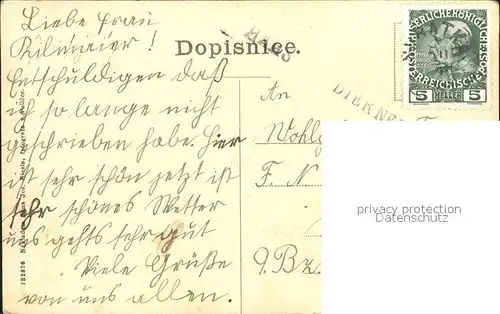 Liebe Frau
Kilmaier!
Entschuldigen daß
ich so lange nicht
geschrieben habe. Hier
ist sehr schön jetzt ist
sehr schönes Wetter
uns gehts sehr gut
Viele Grüße
von uns allen.
Dopisnice.
An
Wohlg
F. N
9. Bz
5 HELLER 5
privacy protection
Datenschutz